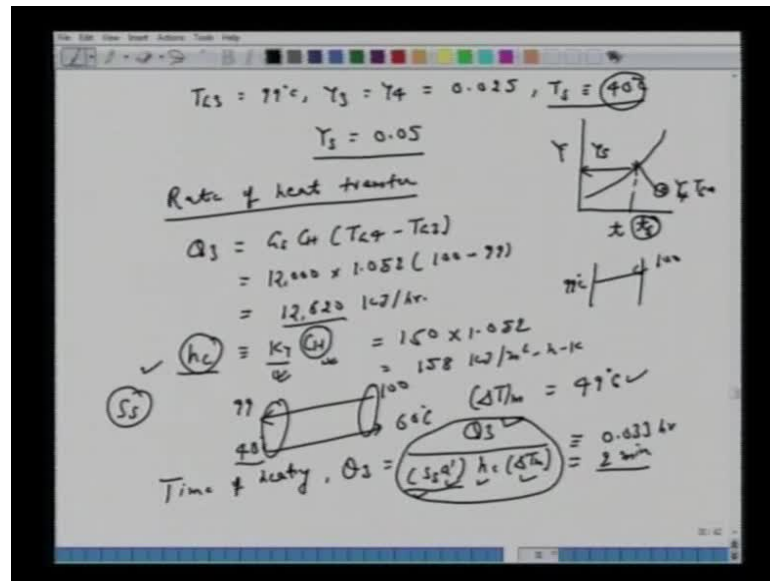 File Edit View Insert Actions Tools Help
T_G3 = 99°c, Y3 = Y4 = 0.025, T_s ≡ 40°C
Y_s = 0.05
Y Y_s
Rate of heat transfer
t t_s
Q3 = G_s C_H (T_G4 - T_G3)
= 12,000 x 1.052 (100 - 99)
99°c 100
= 12,620 KJ/hr.
✓ h_c ≡ K_Y C_H = 150 x 1.052
= 158 KJ/m²-h-K
S_s 99 100 (ΔT)_m = 49°C ✓
40 60°C
Time of heaty, θ3 = Q3 / (S_s a') h_c (ΔT_m) ≡ 0.033 hr
= 2 min